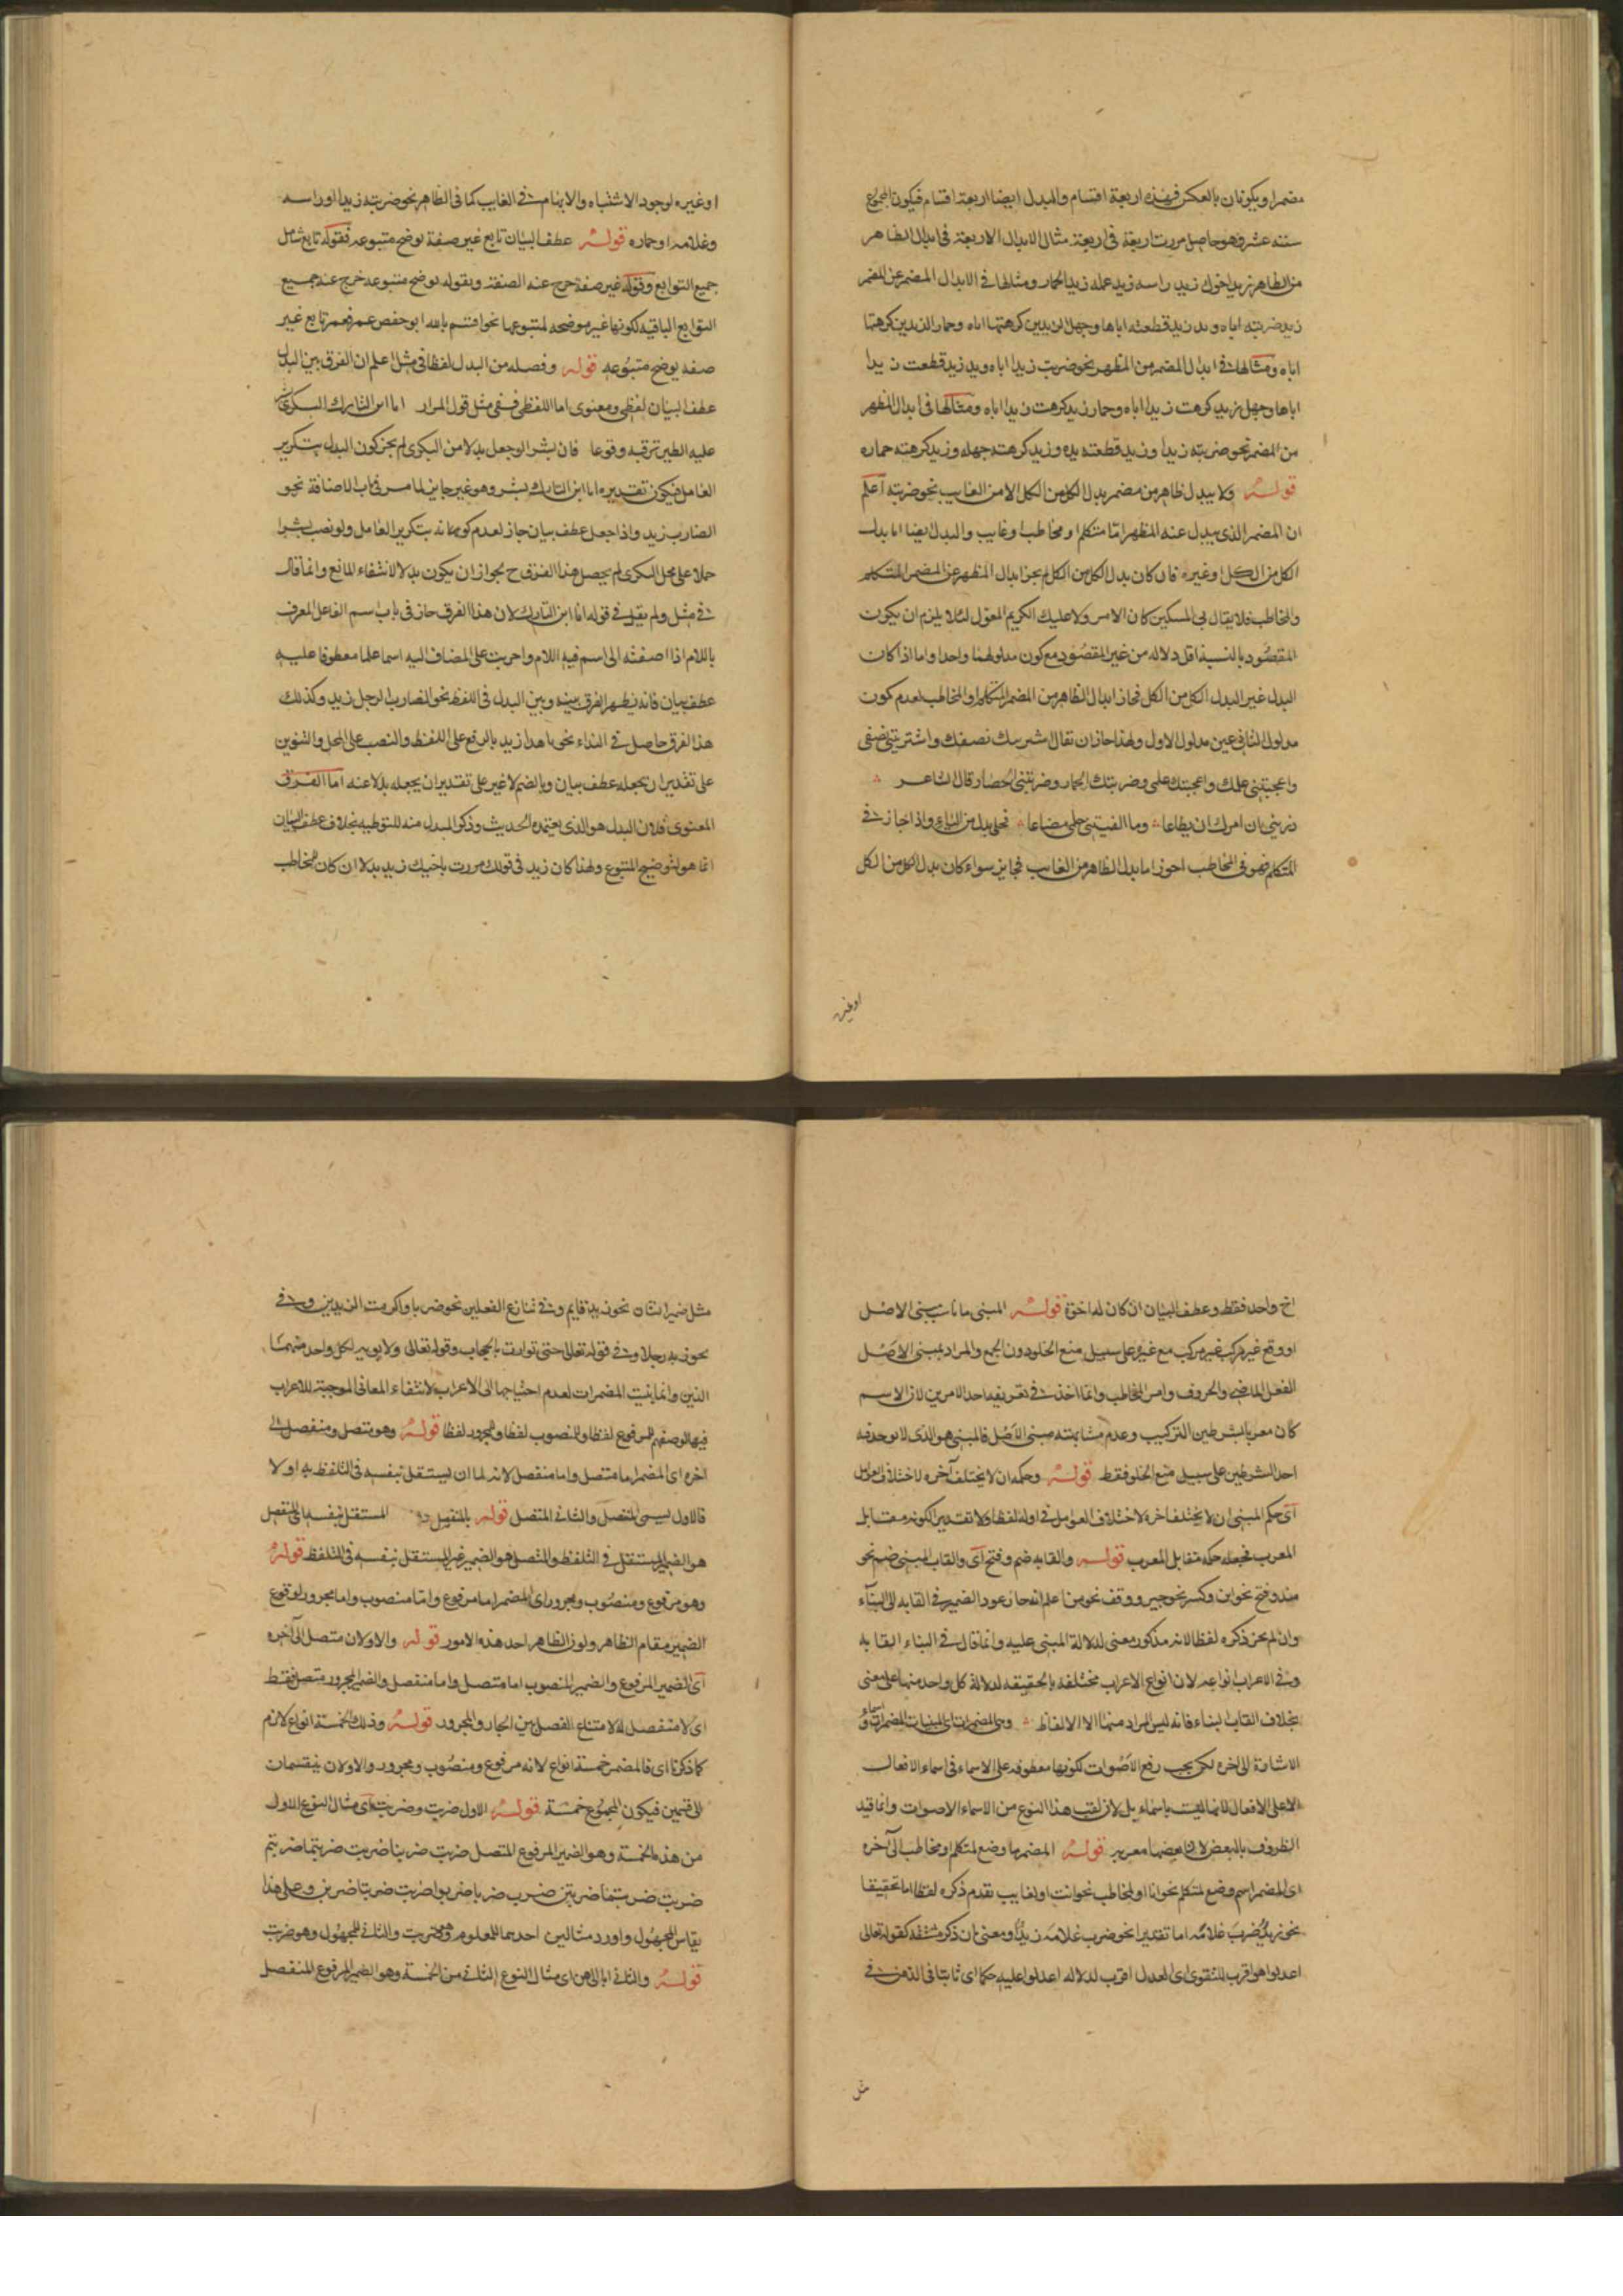 مضمرا ويكونان بالعكس فهذه اربعة اقسام والبدل ايضا اربعة اقسام فيكون المجموع
ستة عشر وهو حاصل من ضرب اربعة فى اربعة مثال الابدال الاربعة فى ابدال الظاهر
من الظاهر زيد اخوك زيد راسه زيد علمه زيد الحمار ومثالها فى الابدال المضمر عن المضمر
زيد ضربته اياه ويد زيد قطعته اياها وجهل الزيدين كرهتهما اياه وحمار الزيدين كرهتهما
اياه ومثالها فى ابدال المضمر من المظهر نحو ضربت زيدا اياه ويد زيد قطعت زيدا
اياها وجهل زيد كرهت زيدا اياه وحمار زيد كرهت زيدا اياه ومثالها فى ابدال المظهر
من المضمر نحو ضربته زيدا وزيد قطعته يده وزيد كرهته جهله وزيد كرهته حماره
قوله ولا يبدل ظاهر من مضمر بدل الكل من الكل الا من الغايب نحو ضربته اعلم
ان المضمر الذى يبدل عنه المظهر اما متكلم او مخاطب او غايب والبدل ايضا اما بدل
الكل من الكل او غيره فان كان بدل الكل من الكل لم يجز ابدال المظهر عن المضمر المتكلم
والمخاطب فلا يقال بى المسكين كان الامر ولا عليك الكريم المعول لئلا يلزم ان يكون
المقصود بالنسبة اقل دلاله من غير المقصود مع كون مدلولهما واحدا واما اذا كان
البدل غير البدل الكل من الكل فجاز ابدال الظاهر من المضمر المتكلم او المخاطب لعدم كون
مدلول الثانى عين مدلول الاول ولهذا جاز ان يقال اشتريتك نصفك واشتريتنى نصفى
واعجبتنى علمك واعجبتك علمى وضربتك الحمار وضربتنى الحمار قال الشاعر
ذرينى ان امرك لن يطاعا وما الفيتنى حلمى مضاعا فحلمى بدل من الياء واذا جاز فى
المتكلم فهو فى المخاطب اجوز اما بدل الظاهر من الغايب فجايز سواء كان بدل الكل من الكل
او غيره
او غيره لوجود الاشتباه والابهام فى الغايب كما فى الظاهر نحو ضربته زيدا او راسه
وغلامه او حماره قوله عطف البيان تابع غير صفة يوضح متبوعه فقوله تابع شامل
جميع التوابع وقوله غير صفة خرج عنه الصفة وبقوله يوضح متبوعه خرج عنه جميع
التوابع الباقيه لكونها غير موضحه لمتبوعها نحو اقسم بالله ابو حفص عمر فعمر تابع غير
صفه يوضح متبوعه قوله وفصله من البدل لفظا فى مثل اعلم ان الفرق بين البدل
عطف البيان لفظى ومعنوى اما اللفظى ففى مثل قول المرار اما ابن التارك البكرى بشر
عليه الطير ترقبه وقوعا فان بشرا لو جعل بدلا من البكرى لم يجز كون البدل بتكرير
العامل فيكون تقديره اما ابن التارك بشر وهو غير جايز لما مر فى باب الاضافة نحو
الضارب زيد واذا جعل عطف بيان جاز لعدم كونه بتكرير العامل ولو نصب بشرا
حملا على محل البكرى لم يحصل هذا الفرق ح لجواز ان يكون بدلا لانتفاء المانع وانما قال
فى مثل ولم يقل فى قوله انا ابن التارك لان هذا الفرق جاز فى باب اسم الفاعل المعرف
باللام اذا اضفته الى اسم فيه اللام واجريت على المضاف اليه اسما علما معطوفا عليه
عطف بيان فانه يظهر الفرق بينه وبين البدل فى اللفظ نحو الضارب الرجل زيد وكذلك
هذا الفرق حاصل فى النداء نحو يا هذا زيد بالرفع على اللفظ والنصب على المحل والتنوين
على تقدير ان يجعله عطف بيان وبالضم لا غير على تقدير ان يجعله بدلا عنه اما الفرق
المعنوى فلان البدل هو الذى يعتمده الحديث وذكر المبدل منه للتوطيه بخلاف عطف البيان
انما هو لتوضيح المتبوع ولهذا كان زيد فى قولك مررت باخيك زيد بدلا ان كان للمخاطب
اخ واحد فقط وعطف البيان ان كان له اخوة قوله المبنى ما ناسب مبنى الاصل
او وقع غير مركب غير مركب مع غيره على سبيل منع الخلو دون الجمع والمراد بمبنى الاصل
الفعل الماضى والحروف وامر المخاطب وانما اخذ فى تعريفه احد الامرين لان الاسم
كان معربا بشرطين التركيب وعدم مشابهته مبنى الاصل فالمبنى هو الذى لا يوجد فيه
احد الشرطين على سبيل منع الخلو فقط قوله وحكمه ان لا يختلف آخره لاختلاف العوامل
اى حكم المبنى ان لا يختلف اخره لاختلاف العوامل فى اوله لفظا ولا تقديرا لكونه مقابل
المعرب فجعله حكمه مقابل المعرب قوله والقابه ضم وفتح اى والقاب المبنى ضم نحو
منذ وفتح نحو اين وكسر نحو جير ووقف نحو من اعلم انه جاز عود الضمير فى القابه الى البناء
وان لم يجز ذكره لفظا لانه مذكور معنى لدلالة المبنى عليه وانما قال فى البناء القابه
وفى الاعراب انواعه لان انواع الاعراب مختلفة بالحقيقة لدلالة كل واحد منها على معنى
بخلاف القاب البناء فانه ليس المراد منها الا الالفاظ وهى المضمرات اى المبنيات المضمرات واسماء
الاشارة الى اخره لكن يجب رفع الاصوات لكونها معطوفه على الاسماء فى اسماء الافعال
لا على الافعال لانها ليست باسماء بل لان لقب هذا النوع من الاسماء الاصوات وانما قيد
الظروف بالبعض لان بعضها معرب قوله المضمر ما وضع لمتكلم او مخاطب الى آخره
اى المضمر اسم وضع لمتكلم نحو انا او لمخاطب نحو انت او لغايب تقدم ذكره لفظا اما تحقيقا
نحو زيد ضرب غلامه اما تقديرا نحو ضرب غلامه زيد او معنى بان ذكر مشتقه كقوله تعالى
اعدلوا هو اقرب للتقوى اى العدل اقرب لدلاله اعدلوا عليه حكما اى ثابتا فى الذهن فى
مثل
مثل ضمير الشان نحو زيد قايم وفى تنازع الفعلين نحو ضربا واكرمت الزيدين وفى
نحو ربه رجلا وفى قوله تعالى حتى توارت بالحجاب وقوله تعالى ولابويه لكل واحد منهما
الذين وانما بنيت المضمرات لعدم احتياجها الى الاعراب لانتفاء المعانى الموجبة للاعراب
فيها لوضعهم المرفوع لفظا والمنصوب لفظا والمجرور لفظا قوله وهو متصل ومنفصل الى
اخره اى المضمر اما متصل واما منفصل لانه اما ان يستقل بنفسه فى التلفظ به او لا
فالاول ليسمى المنفصل والثانى المتصل قوله المستقل بنفسه اى المنفصل
هو الضمير المستقل فى التلفظ والمتصل هو الضمير غير المستقل بنفسه فى التلفظ قوله
وهو مرفوع ومنصوب ومجرور اى المضمر اما مرفوع واما منصوب واما مجرور لوقوع
الضمير مقام الظاهر ولزوم الظاهر احد هذه الامور قوله والاولان متصل الى آخره
اى الضمير المرفوع والضمير المنصوب اما متصل واما منفصل والضمير المجرور متصل فقط
اى لا منفصل له لامتناع الفصل بين الجار والمجرور قوله وذلك الخمسة انواع لازم
كما ذكرنا اى فالمضمر خمسة انواع لانه مرفوع ومنصوب ومجرور والاولان ينقسمان
الى قسمين فيكون المجموع خمسة قوله الاول ضربت وضربت اى مثال النوع الاول
من هذه الخمسة وهو الضمير المرفوع المتصل ضربت ضربنا ضربت ضربتما ضربتم
ضربت ضربتما ضربتن ضرب ضربا ضربوا ضربت ضربتا ضربن وعلى هذا
يقاس المجهول واورد مثالين احدهما للمعلوم وهو ضربت والثانى للمجهول وهو ضربت
قوله والثانى انا الى هن اى مثال النوع الثانى من الخمسة وهو الضمير المرفوع المنفصل